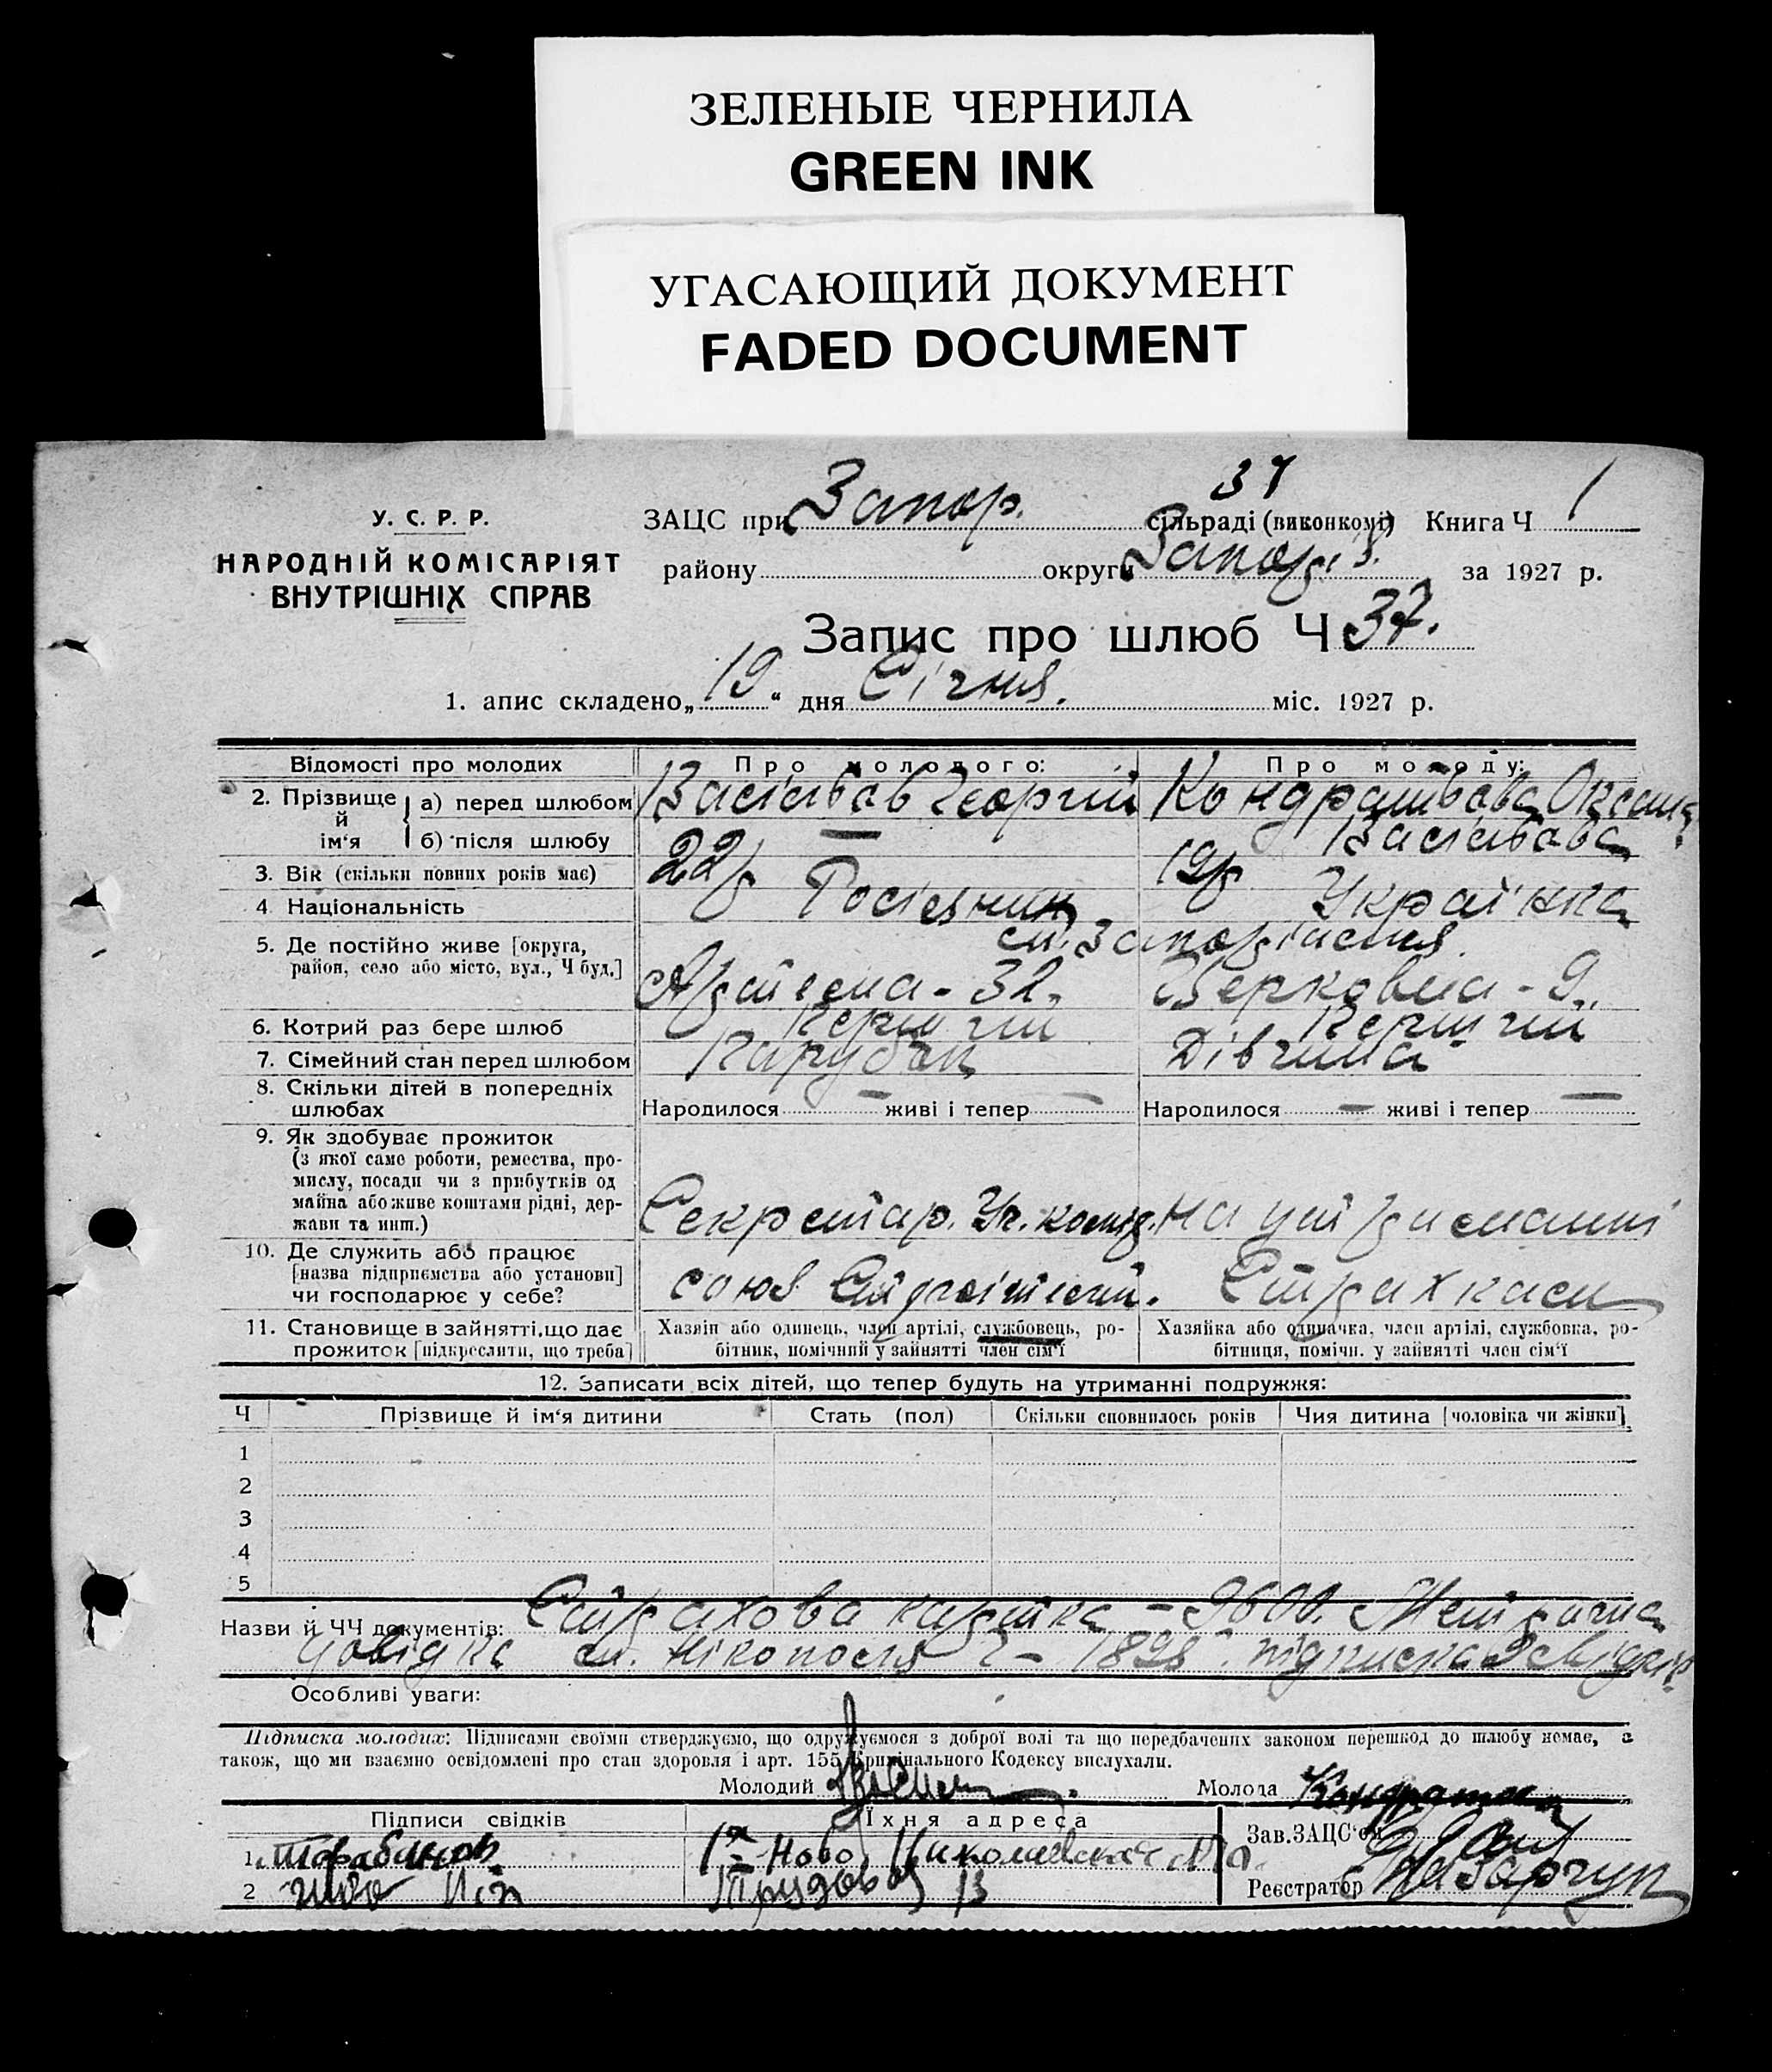 ЗЕЛЕНЫЕ ЧЕРНИЛА
GREEN INK
УГАСАЮЩИЙ ДОКУМЕНТ
FADED DOCUMENT
37
У. С. Р. Р.
НАРОДНІЙ КОМІСАРІЯТ
ВНУТРІШНІХ СПРАВ
ЗАЦС при Запор. сільраді (виконкомі) Книга Ч 1
району округи Запоріз. за 1927 р.
Запис про шлюб Ч 37.
1. апис складено „19“ дня Січня. міс. 1927 р.
Відомості про молодих Про молодого: Про молоду:
2. Прізвище й ім‘я а) перед шлюбом Георгій Кондратьєва Оксана
б) після шлюбу —
3. Вік (скільки повних років має) 22 р 19 р
4 Національність Українка
5. Де постійно живе [округа, м. Запоріжжя
район, село або місто, вул., Ч буд.] Артема - 32, - 9.
6. Котрий раз бере шлюб Первий Первий
7. Сімейний стан перед шлюбом Парубок Дівчина
8. Скільки дітей в попередніх
шлюбах Народилося — живі і тепер — Народилося — живі і тепер —
9. Як здобуває прожиток
(з якої саме роботи, ремества, про-
мислу, посади чи з прибутків од
майна або живе коштами рідні, дер-
жави та инш.) Секретар. на утриманні
10. Де служить або працює
[назва підприємства або установи] союз Страхкаси
чи господарює у себе?
11. Становище в зайнятті, що дає Хазяїн або одинець, член артілі, службовець, ро- Хазяйка або одиначка, член артілі, службовка, ро-
прожиток [підкреслити, що треба] бітник, помічний у зайнятті член сім‘ї бітниця, помічн. у зайнятті член сім‘ї
12. Записати всіх дітей, що тепер будуть на утриманні подружжя:
Ч Прізвище й ім‘я дитини Стать (пол) Скільки сповнилось років Чия дитина [чоловіка чи жінки]
1
2
3
4
5
Назви й ЧЧ документів: Страхова картка - 9600. Метрична
довідка м. Нікополя підписка
Особливі уваги:
Підписка молодих: Підписами своїми стверджуємо, що одружуємося з доброї волі та що передбачених законом перешкод до шлюбу немає, а
також, що ми взаємно освідомлені про стан здоровля і арт. 155 Кримінального Кодексу вислухали.
Молодий Молода
Підписи свідків Їхня адреса Зав. ЗАЦС‘ом
1. 1я Ново Николаевская
2 Трудова 13 Реєстратор Назарчук